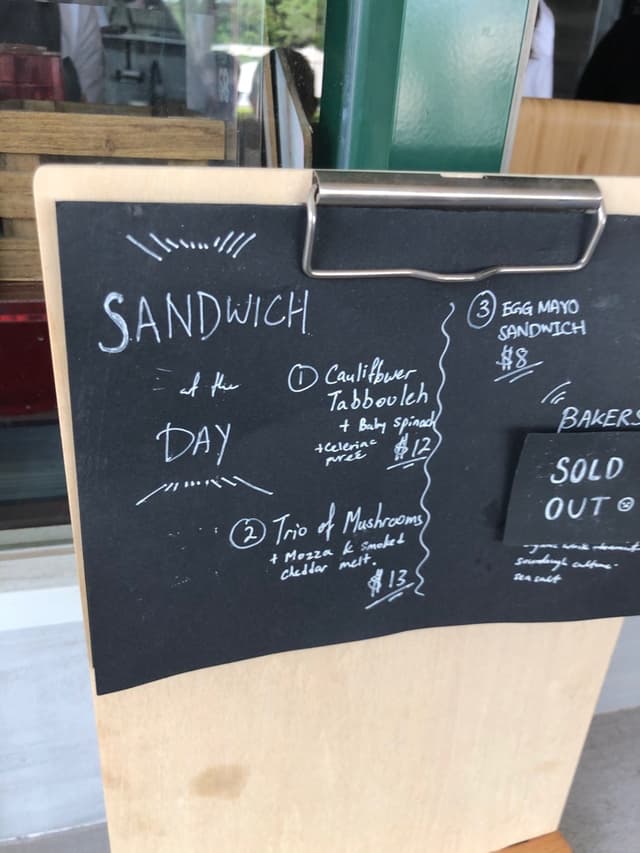 SANDWICH
of the
DAY
① Cauliflower
Tabbouleh
+ Baby Spinach
+ Celeriac
puree
$12
② Trio of Mushrooms
+ Mozza & Smoked
cheddar melt.
$13
③ EGG MAYO
SANDWICH
$8
BAKERS
SOLD
OUT ☹
sourdough culture-
sea salt